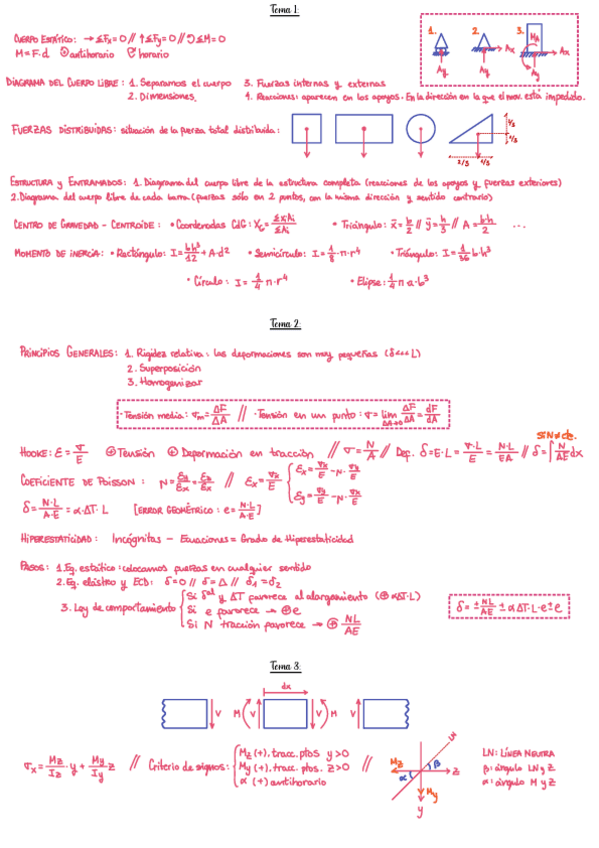 Tema 1:
CUERPO ESTÁTICO: → ΣFx=0 // ↑ΣFy=0 // ↺ΣM=0
M=F·d ↺ antihorario ↻ horario
1. 2. 3.
MA
Ax Ax
Ay Ay Ay
DIAGRAMA DEL CUERPO LIBRE: 1. Separamos el cuerpo 3. Fuerzas internas y externas
2. Dimensiones. 4. Reacciones: aparecen en los apoyos. En la dirección en la que el mov. está impedido.
FUERZAS DISTRIBUIDAS: situación de la fuerza total distribuida:
2/3
1/3
2/3 1/3
ESTRUCTURA y ENTRAMADOS: 1. Diagrama del cuerpo libre de la estructura completa (reacciones de los apoyos y fuerzas exteriores)
2. Diagrama del cuerpo libre de cada barra (fuerzas sólo en 2 puntos, con la misma dirección y sentido contrario)
CENTRO DE GRAVEDAD - CENTROIDE: • Coordenadas CdG: XG = ΣxiAi/ΣAi • Triángulo: x̄ = b/2 // ȳ = h/3 // A = b·h/2 ...
MOMENTO DE INERCIA: • Rectángulo: I = bh³/12 + A·d² • Semicírculo: I = 1/8·π·r⁴ • Triángulo: I = 1/36 b·h³
• Círculo: I = 1/4 π·r⁴ • Elipse: 1/4 π·a·b³
Tema 2:
PRINCIPIOS GENERALES: 1. Rigidez relativa: las deformaciones son muy pequeñas (δ<<<L)
2. Superposición
3. Homogenizar
· Tensión media: σm = ΔF/ΔA // · Tensión en un punto: σ = lim ΔA→0 ΔF/ΔA = dF/dA
SIN≠cte.
HOOKE: ε = σ/E ⊕ Tensión ⊕ Deformación en tracción // σ = N/A // Def. δ=ε·L = σ·L/E = N·L/EA // δ = ∫ N/AE dx
COEFICIENTE DE POISSON:
δ = N·L/A·E = α·ΔT·L [ERROR GEOMÉTRICO: e = N·L/A·E]
HIPERESTATICIDAD: Incógnitas - Ecuaciones = Grado de Hiperestaticidad
PASOS: 1. Eq. estático: colocamos fuerzas en cualquier sentido
2. Eq. elástico y ECD: δ=0 // δ=Δ // δ1=δ2
3. Ley de comportamiento
Si ΔT favorece al alargamiento (⊕ αΔT·L)
Si e favorece → ⊕e
Si N tracción favorece → ⊕ NL/AE
δ = ± NL/AE ± αΔT·L·e±e
Tema 3:
dx
V M V V M V
σx = Mz/Iz · y + My/Iy z // Criterio de signos:
Mz (+). tracc. ptos y>0
My (+). tracc. ptos. z>0
α (+) antihorario
LN
Mz α β z
My
y
LN: LÍNEA NEUTRA
β: ángulo LN y Z
α: ángulo M y Z